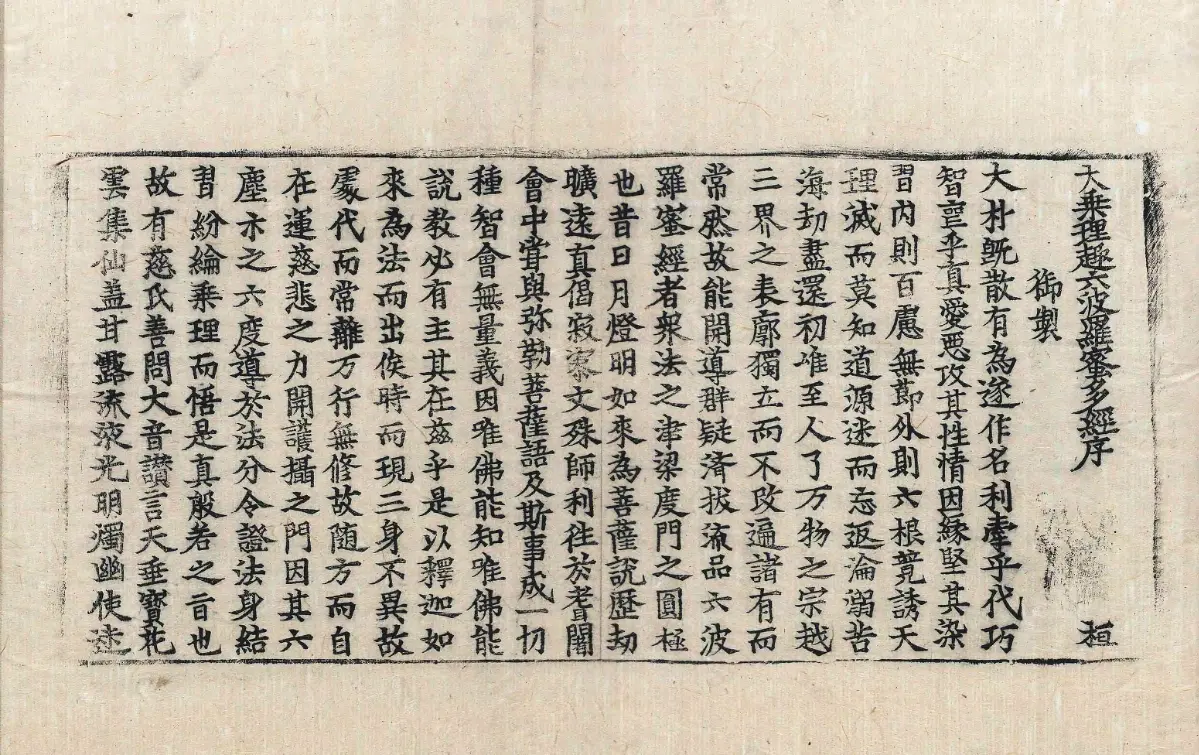 大乘理趣六波羅蜜多經序 桓
御製
大朴旣散有為遂作名利牽乎代巧
智窒乎真愛惡攻其性情因緣堅其染
習內則百慮無節外則六根競誘天
理滅而莫知道源迷而忘返淪溺苦
海劫盡還初唯至人了万物之宗越
三界之表廓獨立而不改遍諸有而
常然故能開導群疑濟拔流品六波
羅蜜經者衆法之津梁度門之圓極
也昔日月燈明如來為菩薩說歷劫
曠遠真偈寂寥文殊師利往於耆闍
會中嘗與弥勒菩薩語及斯事成一切
種智會無量義因唯佛能知唯佛能
說教必有主其在茲乎是以釋迦如
來為法而出俟時而現三身不異故
處代而常離万行無修故隨方而自
在運慈悲之力開護攝之門因其六
塵示之六度導於法分令證法身結
習紛綸乘理而悟是真般若之旨也
故有慈氏善問大音讚言天垂寶花
雲集仙蓋甘露流液光明燭幽使迷